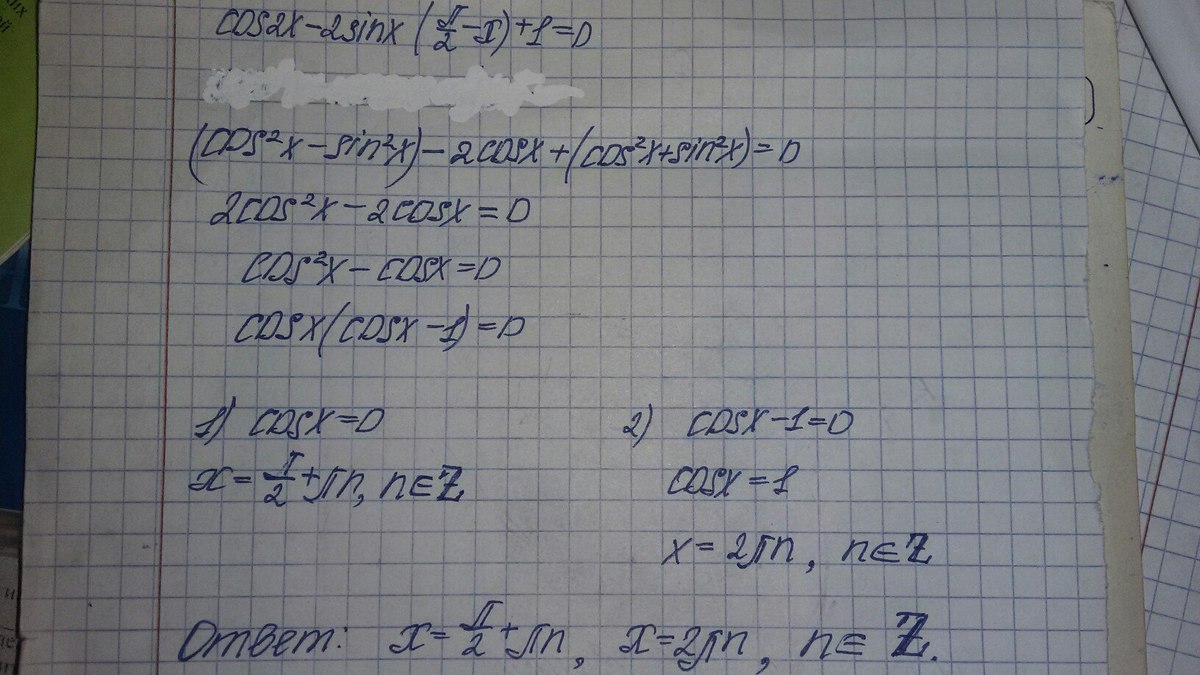 cos2x-2sinx(π/2-x)+1=0
(cos²x-sin²x)-2cosx+(cos²x+sin²x)=0
2cos²x-2cosx=0
cos²x-cosx=0
cosx(cosx-1)=0
1) cosx=0
x=π/2+πn, n∈Z
2) cosx-1=0
cosx=1
x=2πn, n∈Z
Ответ: x=π/2+πn, x=2πn, n∈Z.